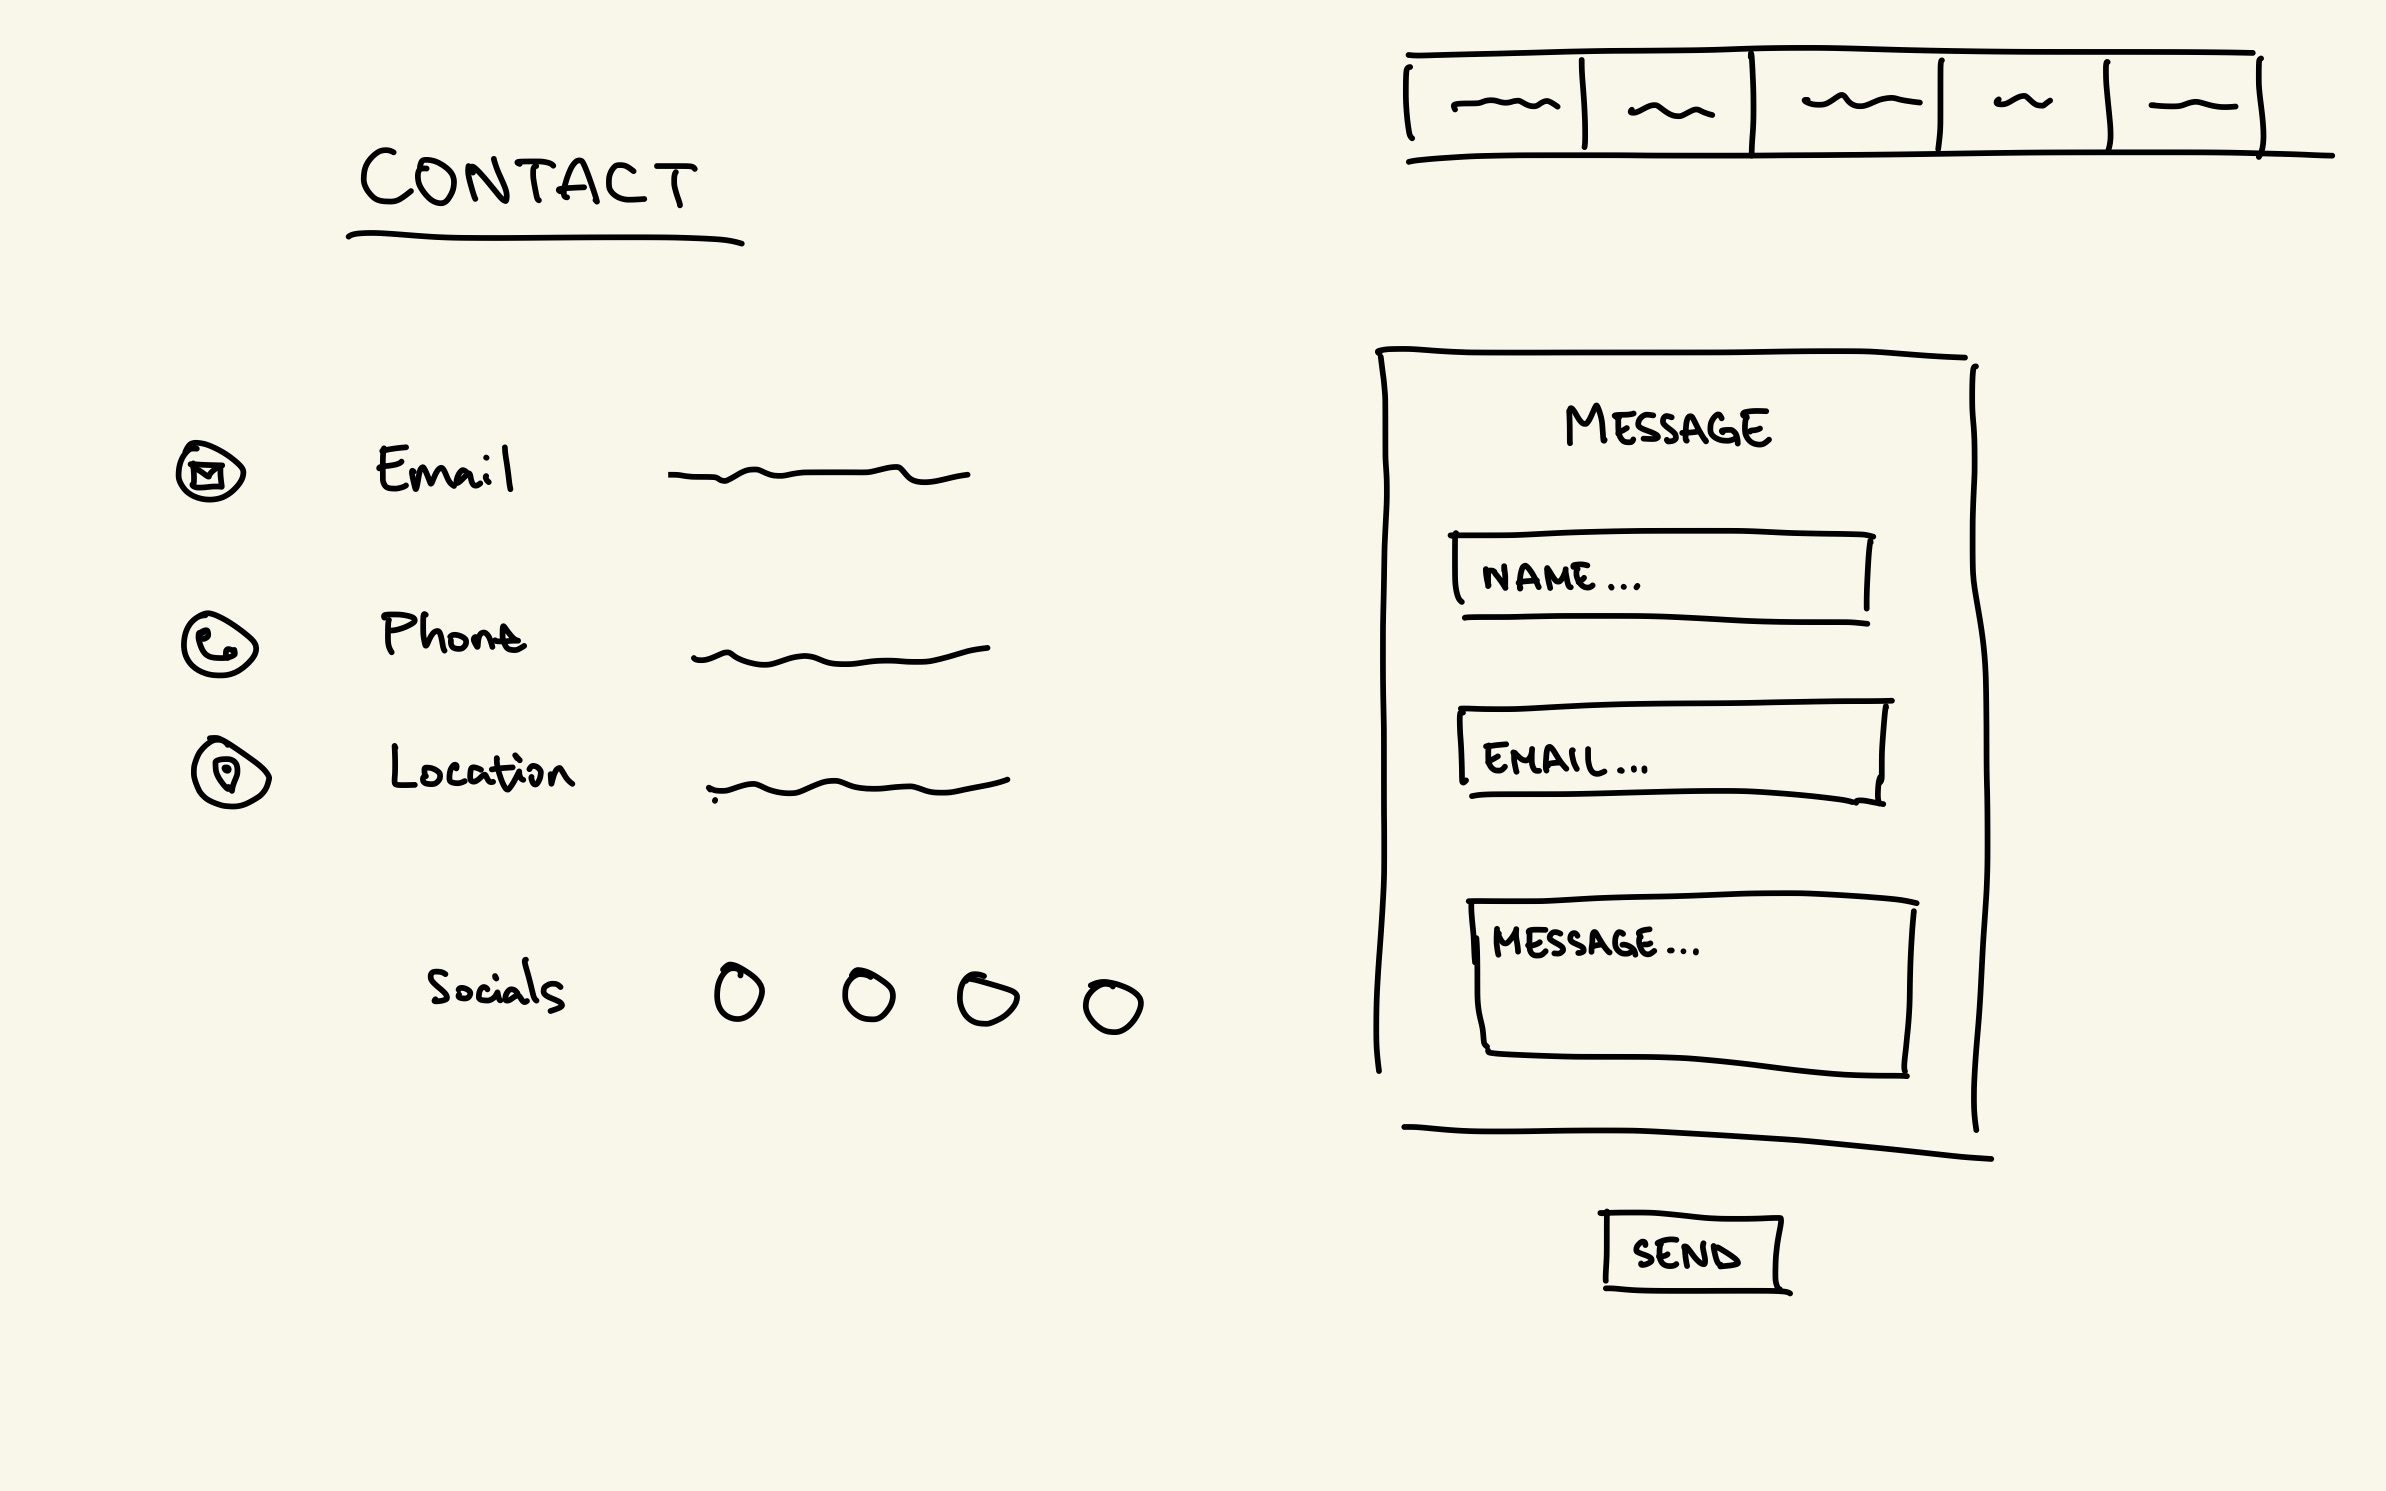 CONTACT
Email
Phone
Location
Socials
MESSAGE
NAME...
EMAIL...
MESSAGE...
SEND